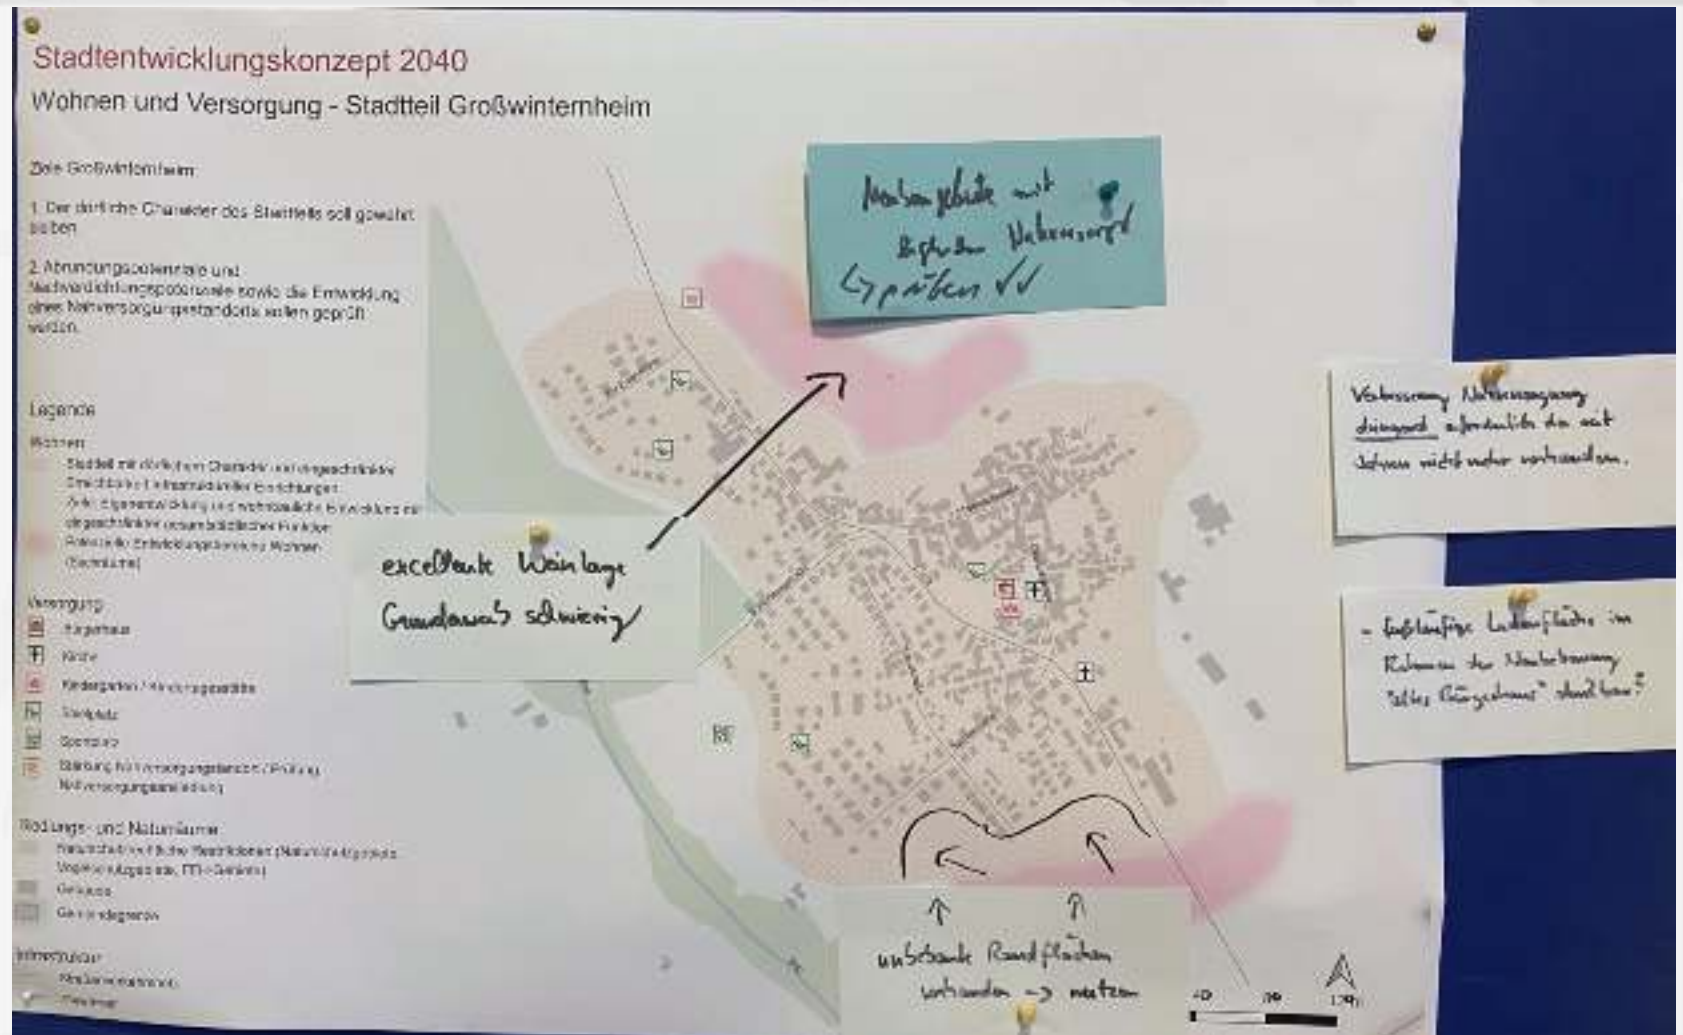 Stadtentwicklungskonzept 2040
Wohnen und Versorgung - Stadtteil Großwinternheim
Ziele Großwinternheim:
1. Der dörfliche Charakter des Stadtteils soll gewahrt
bleiben
2. Abrundungspotenziale und
Nachverdichtungspotenziale sowie die Entwicklung
eines Nahversorgungsstandorts sollen geprüft
werden.
Legende
Wohnen
Stadtteil mit dörflichem Charakter und eingeschränkter
Erreichbarkeit infrastruktureller Einrichtungen
Ziele: Eigenentwicklung und wohnbauliche Entwicklung
eingeschränkter gesamtstädtischer Funktion
Potenzielle Entwicklungsbereiche Wohnen
(Suchräume)
Versorgung
Bürgerhaus
Kirche
Kindergarten / Kindertagesstätte
Spielplatz
Sportplatz
Stärkung Nahversorgungsstandort / Prüfung
Nahversorgungsansiedlung
Siedlungs- und Naturräume
Naturschutzrechtliche Restriktionen (Naturschutzgebiete,
Vogelschutzgebiete, FFH-Gebiete)
Gebäude
Gemeindegrenze
Infrastruktur
Gewässer
Neubaugebiete mit
Nahversorgung
↳ prüfen ✓✓
excellente Weinlage
Grunderwerb schwierig
Verbesserung Nahversorgung
dringend erforderlich da seit
Jahren nicht mehr vorhanden.
- fußläufige Ladenfläche im
Rahmen der Neubebauung
"altes Bürgerhaus" denkbar?
unbebaute Randflächen
vorhanden -> nutzen